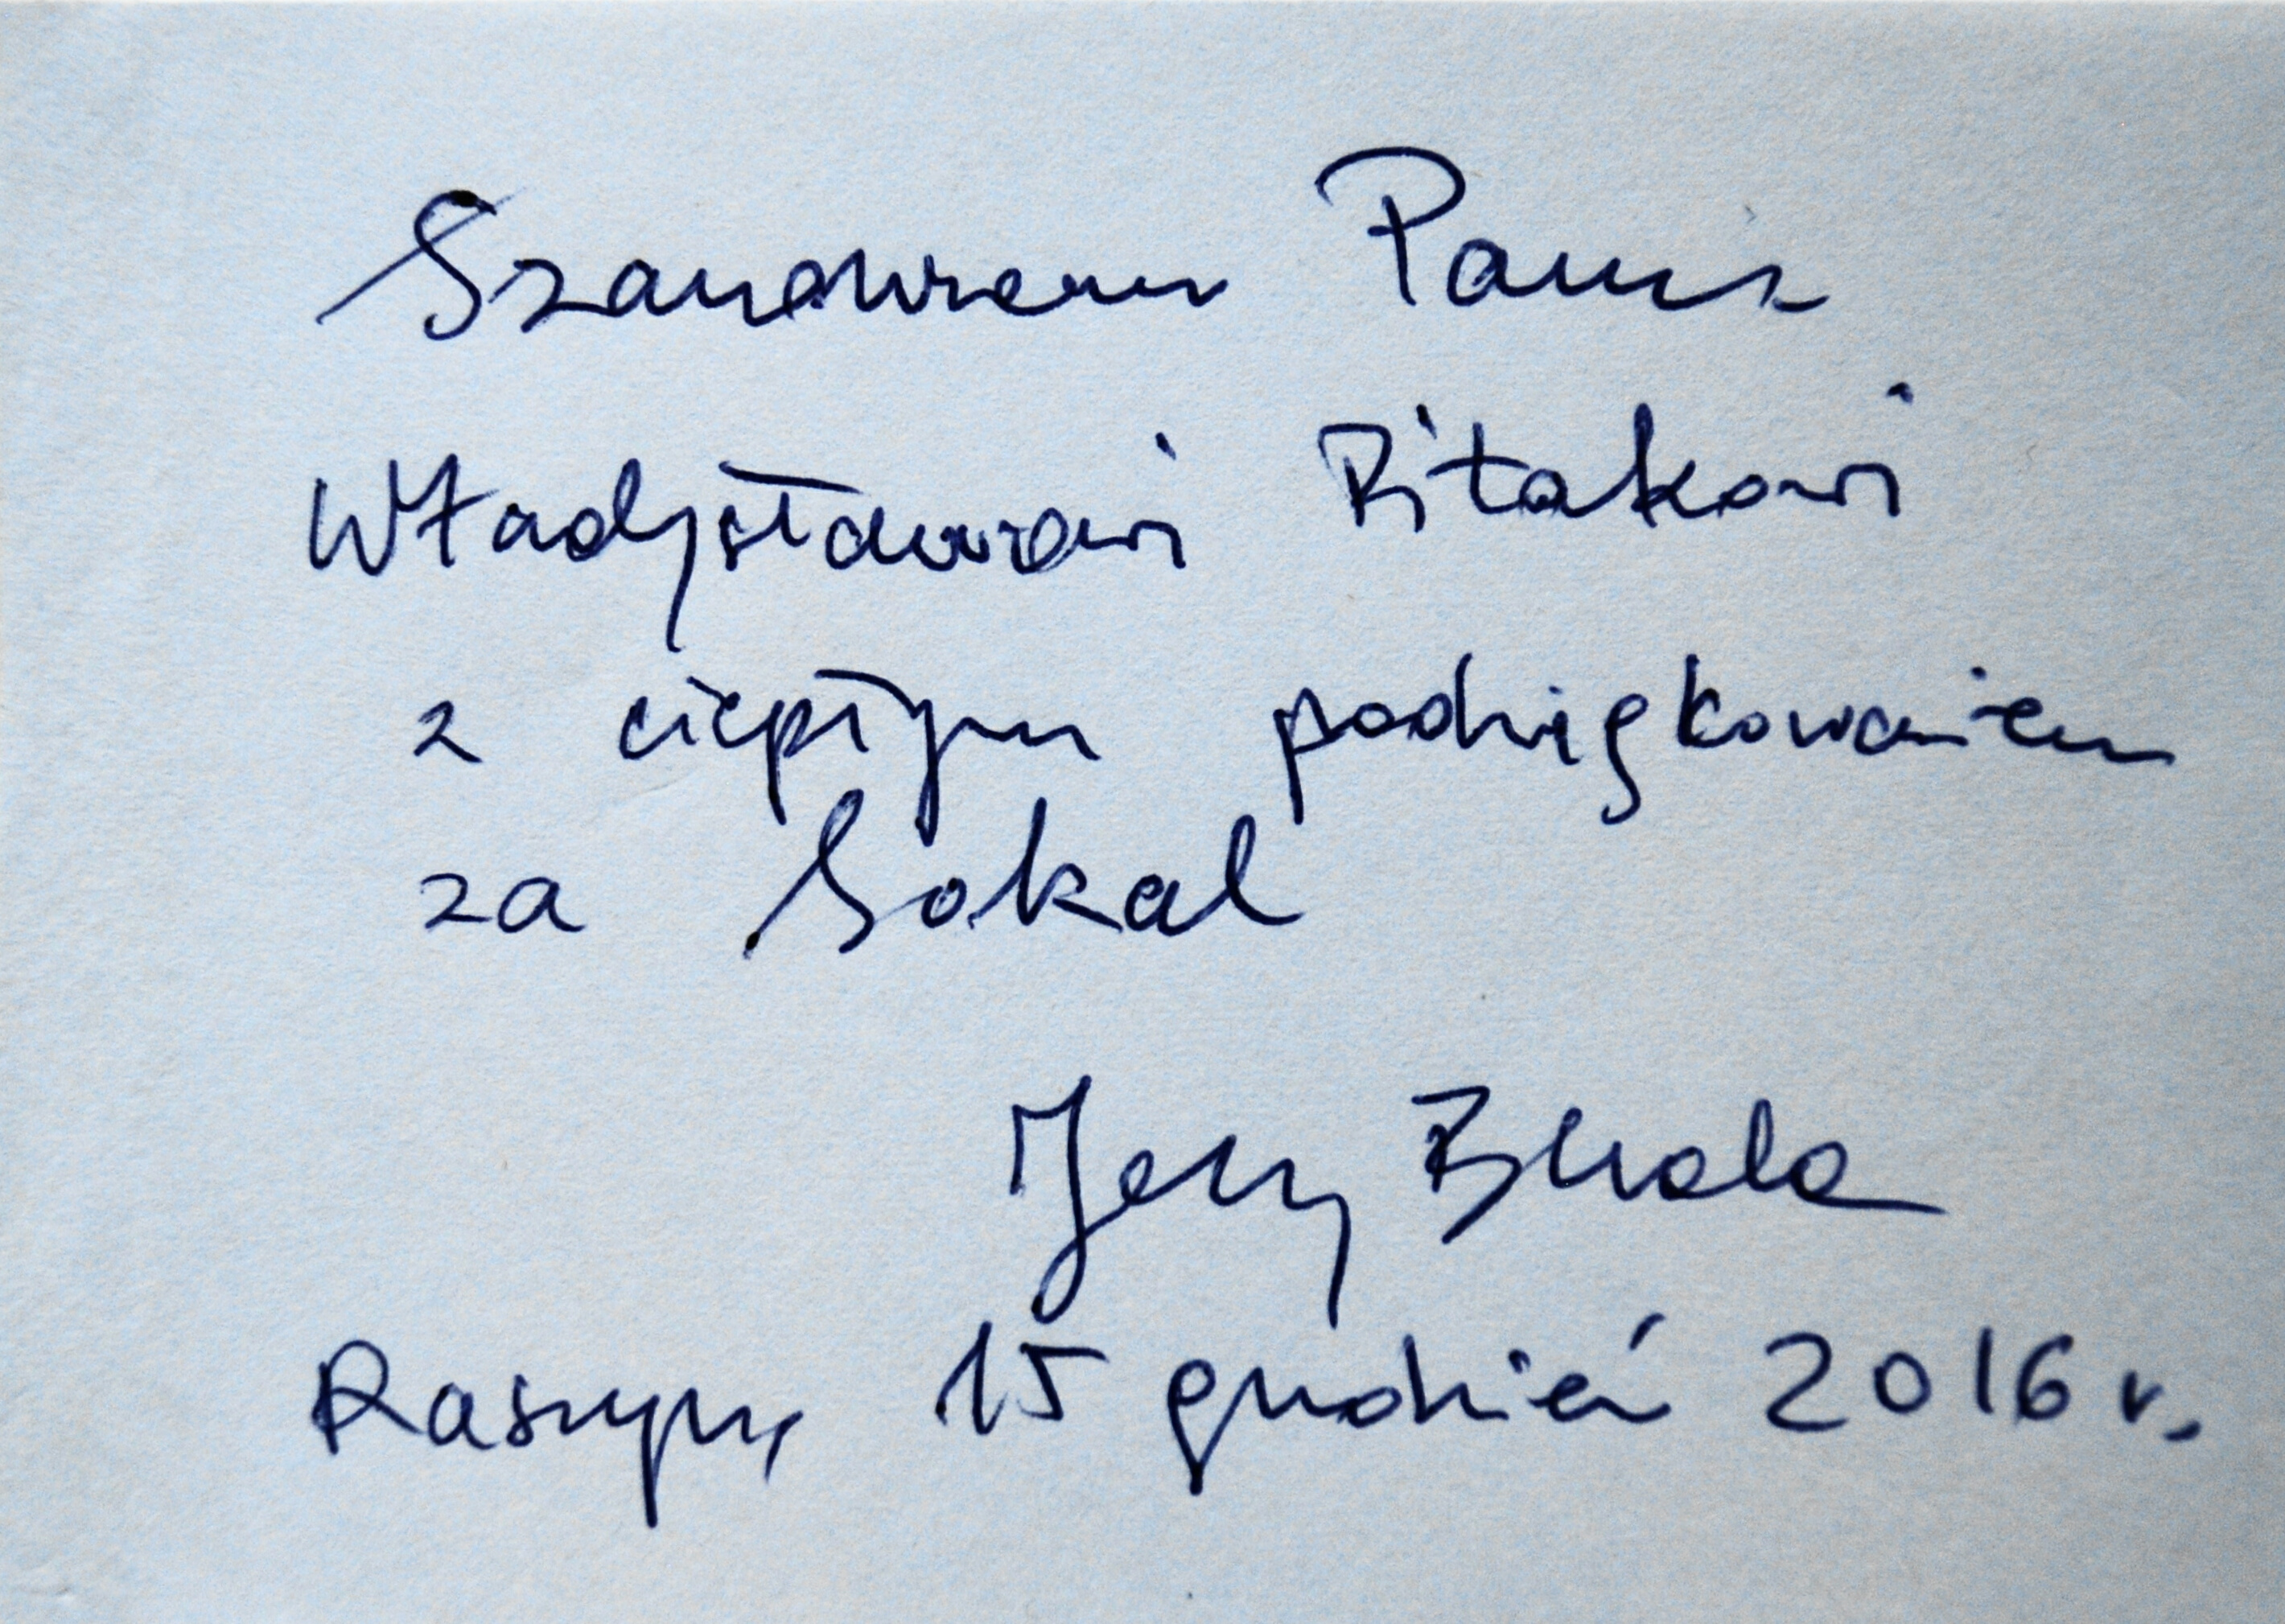 Szanownemu Panu
Władysławowi Pitakowi
z ciepłym podziękowaniem
za Sokal
Jerzy
Raszyn, 15 grudzień 2016 r.